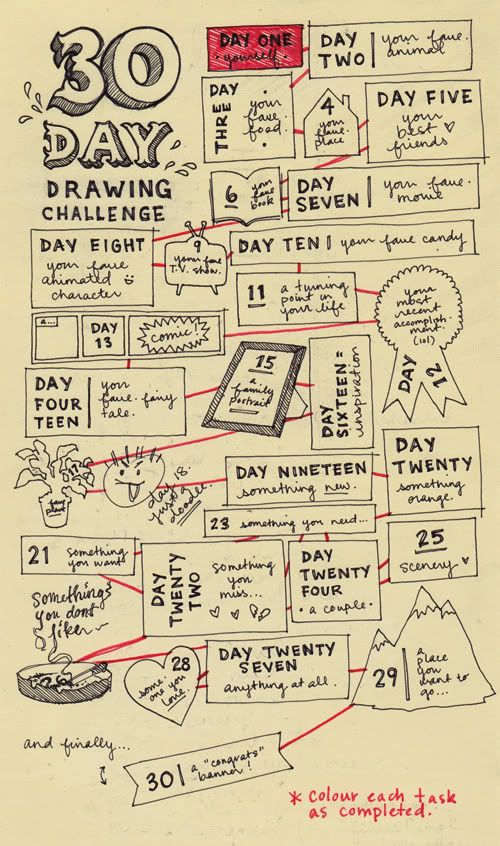 30
DAY
DRAWING
CHALLENGE
DAY ONE
• yourself •
DAY
TWO
your fave.
animal
DAY
THREE
your
fave.
food
4
your
fave.
place
DAY FIVE
your
best
friends
6
your
fave
book
DAY
SEVEN
your fave.
movie
DAY EIGHT
your fave
animated
character
9
your fave
T.V. show.
DAY TEN
your fave candy
11
a turning
point in
your life
your
most
recent
accomplish-
ment.
(lol)
DAY
12
a...
DAY
13
comic!
DAY
FOUR
TEEN
your
fave. fairy
tale.
15
a
family
portrait
DAY
SIXTEEN =
inspiration
fave
plant
day 18
just a
doodle.
DAY NINETEEN
something new.
DAY
TWENTY
something
orange.
21
something
you want
DAY
TWENTY
TWO
something
you
miss...
23 something you need...
DAY
TWENTY
FOUR
• a couple •
25
scenery
Somethings
you dont
like
DAY TWENTY
SEVEN
anything at all.
28
some
one you
love
29
a
place
you
want to
go...
and finally...
30
a "congrats"
banner!
* Colour each task
as completed.